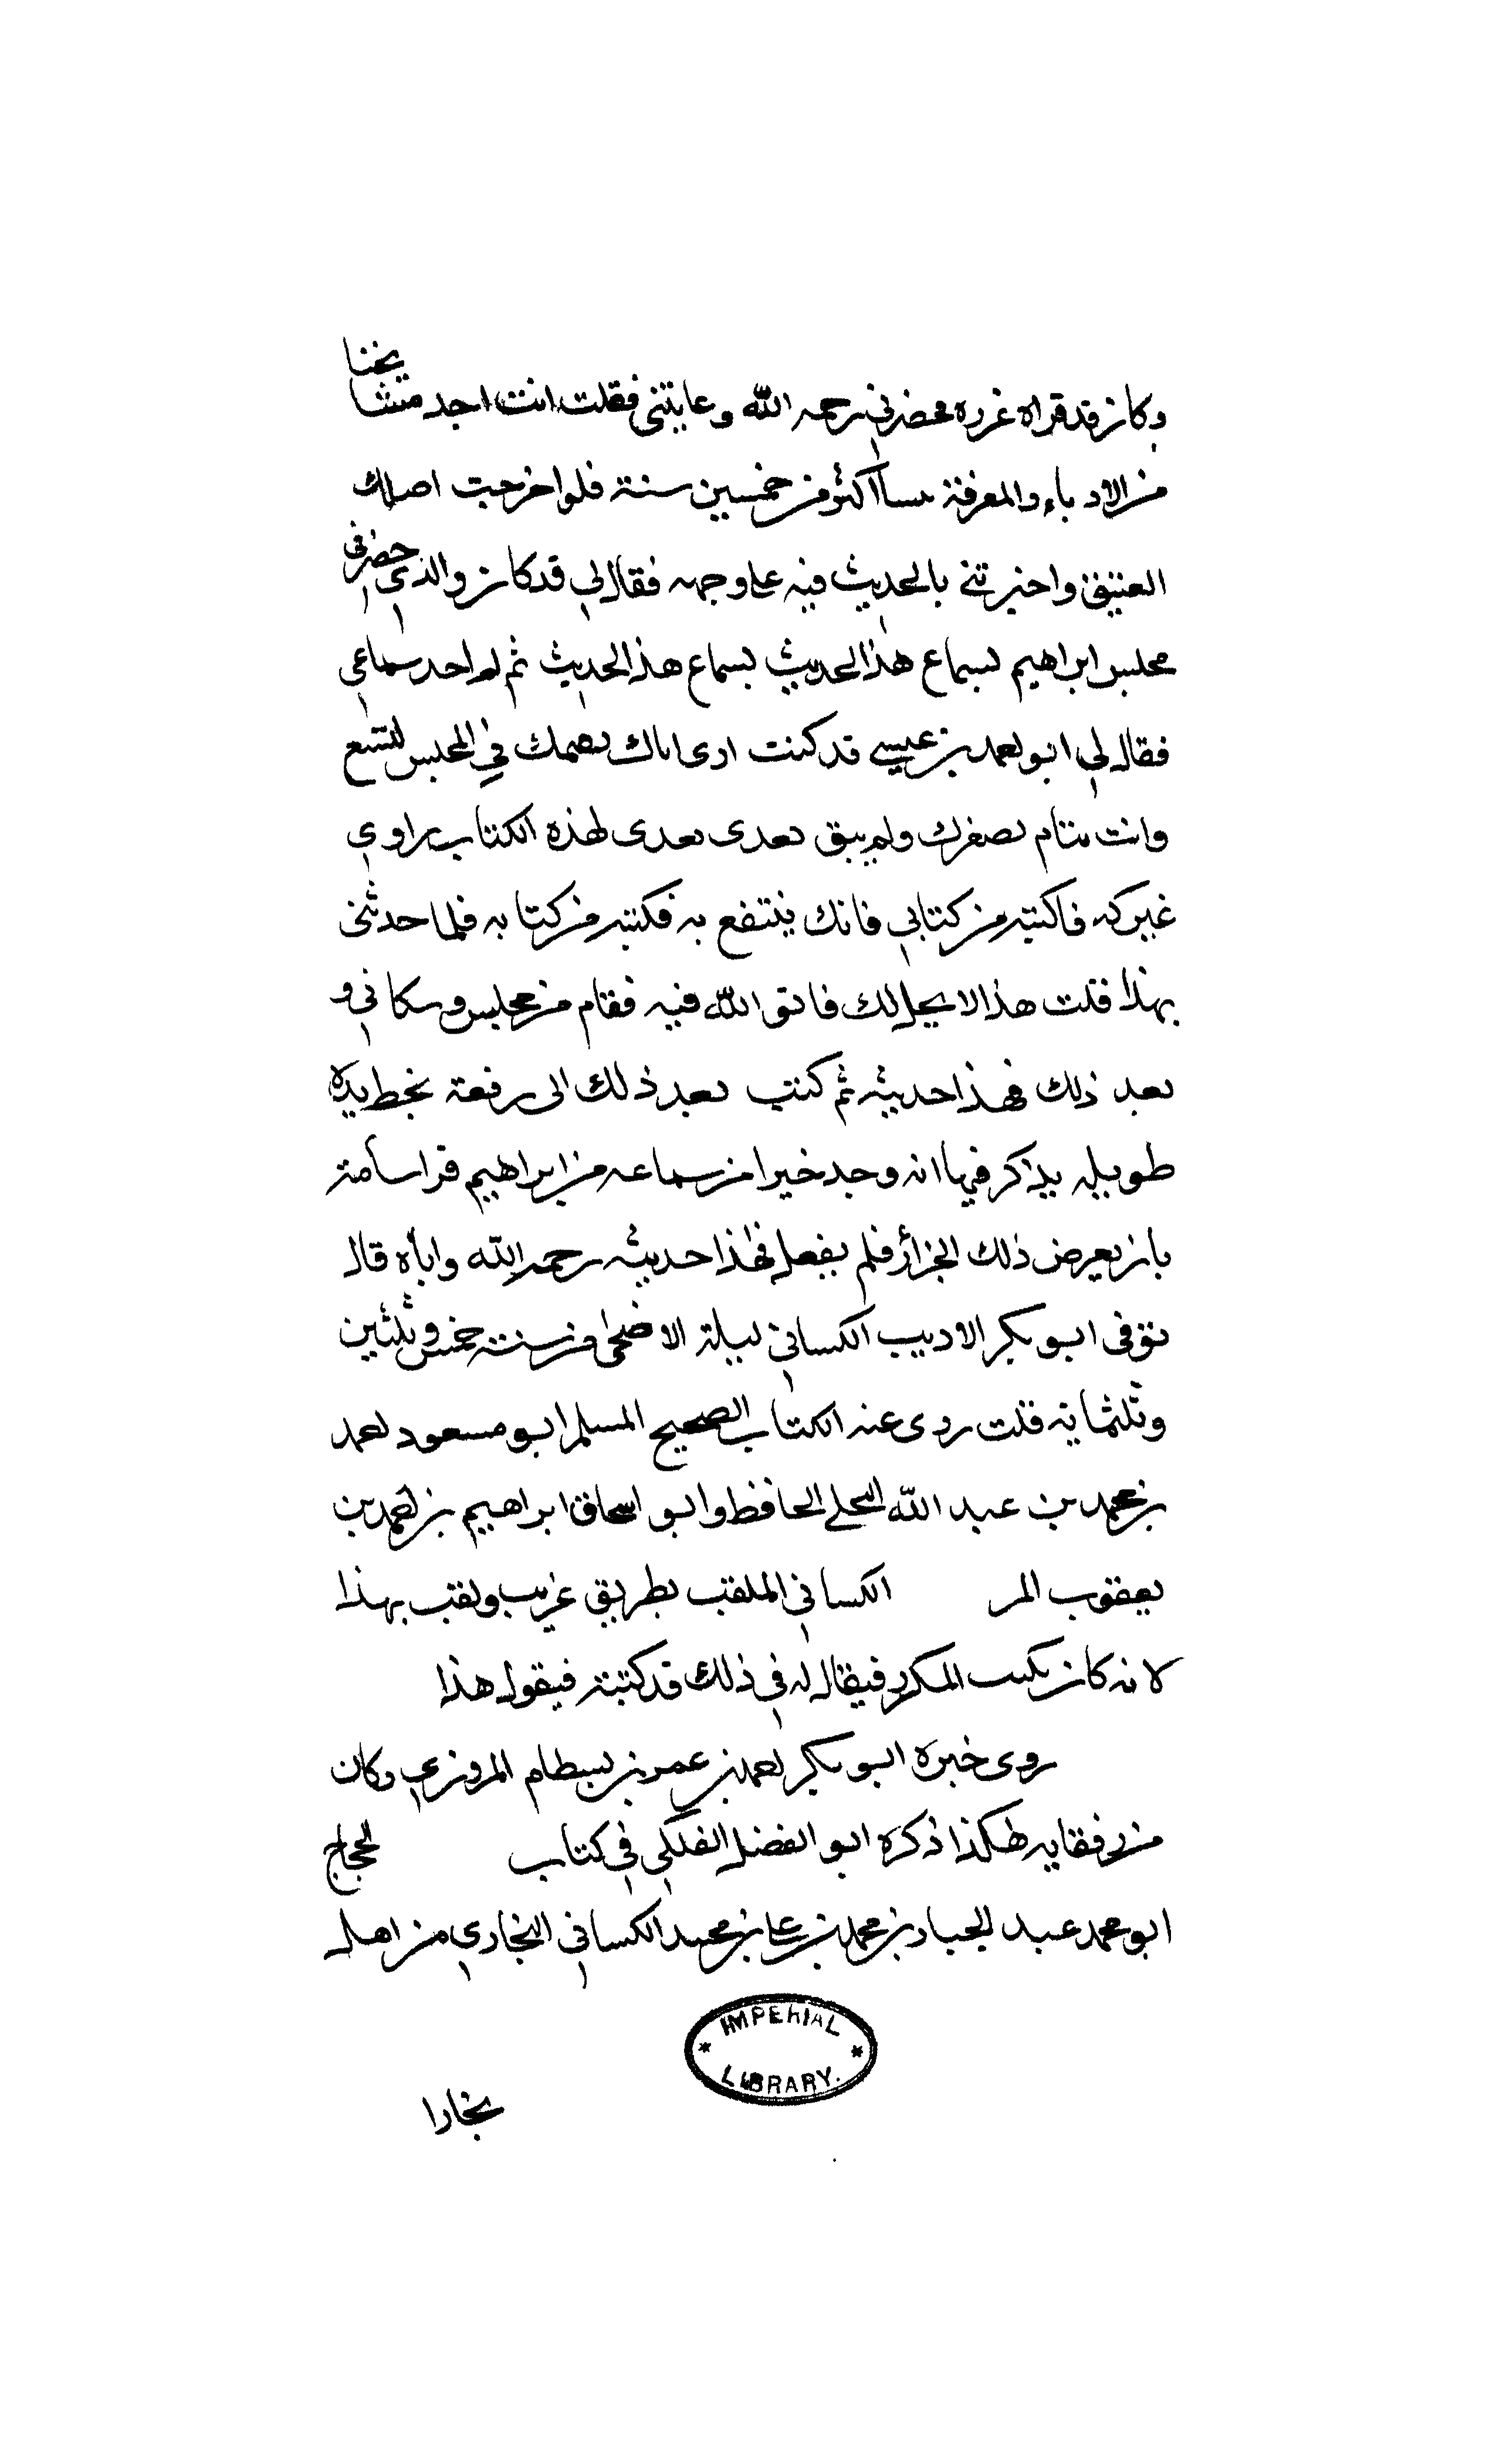 وكان قد قراه غره محضرني رحمه الله وعاتبنى فقلت انت احد مشايخنا
من الادباء والمعرفة سا اكثر من خمسين سنة فلو اخرجت اصلك
العتيق واخبرتني بالحديث فيه على وجهه فقال لي قد كان والذي حضرني
مجلس ابراهيم لسماع هذا الحديث لسماع هذا الحديث ثم لم احد سماعي
فقال لي ابو احمد بن عيسى قد كنت ارى اباك يضمك في المجلس لتسمع
وانت تنام لصغرك ولم يبق بعدى بعدى لهذه الكتاب راوي
غيرك فاكتبه من كتابي فانك ينتفع به فكتبته من كتابه فلما حدثنى
بهذا قلت هذا لا يحل لك فاتق الله فيه فقام من مجلس وسكانى و
بعد ذلك فهذا حديثه ثم كتب بعد ذلك الى رقعة بخط يده
طويله يذاكر فيها انه وجد خيرا من سماعه من ابراهيم قراسامة
بان يعرض ذلك الجزأ فلم يفعل فهذا حديثه رحمه الله واياه قال
توفى ابو بكر الاديب الكسانى ليلة الاضحى من سنة خمس وثلثين
وثلثماية قلت روى عنه الكتاب الصحيح المسلم ابو مسعود احمد
بن محمد بن عبد الله البجلي الحافظ وابو اسحاق ابراهيم بن احمد بن
يعقوب المر الكسانى الملقب بطريق غريب ولقب بهذا
لانه كان يكتب المكرر فيقال له في ذلك قد كتبته فيقول هذا
روى خبره ابو بكر احمد بن عمر بن بسطام المروزي وكان
من رفقايه هكذا ذكره ابو الفضل الفلكى في كتاب الحجاج
ابو محمد عبد الجبار بن محمد بن على بن محمد الكسانى البخاري من اهل
IMPERIAL
LIBRARY.
بخارا